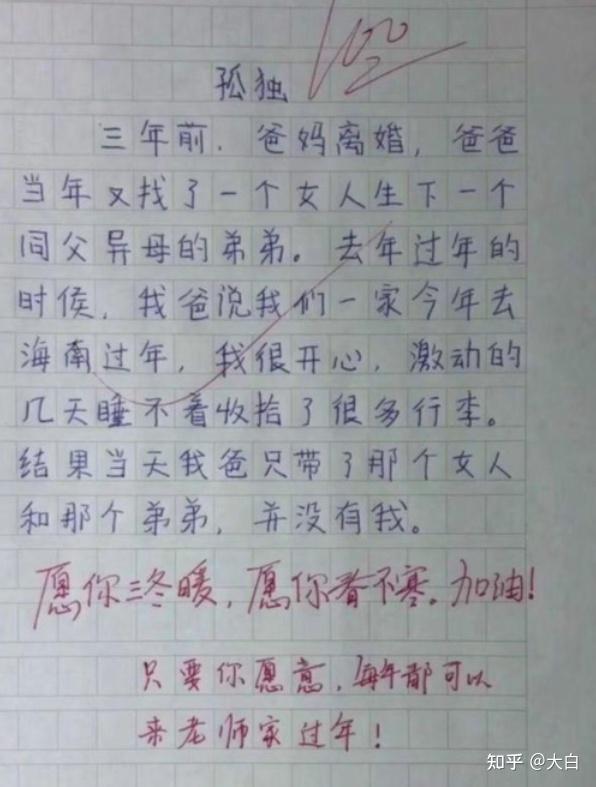 100
孤独
三年前．爸妈离婚，爸爸
当年又找了一个女人生下一个
同父异母的弟弟。去年过年的
时侯，我爸说我们一家今年去
海南过年，我很开心，激动的
几天睡不着收拾了很多行李。
结果当天我爸只带了那个女人
和那个弟弟，并没有我。
愿你三冬暖，愿你春不寒。加油！
只要你愿意，每年都可以
来老师家过年！
知乎 @大白